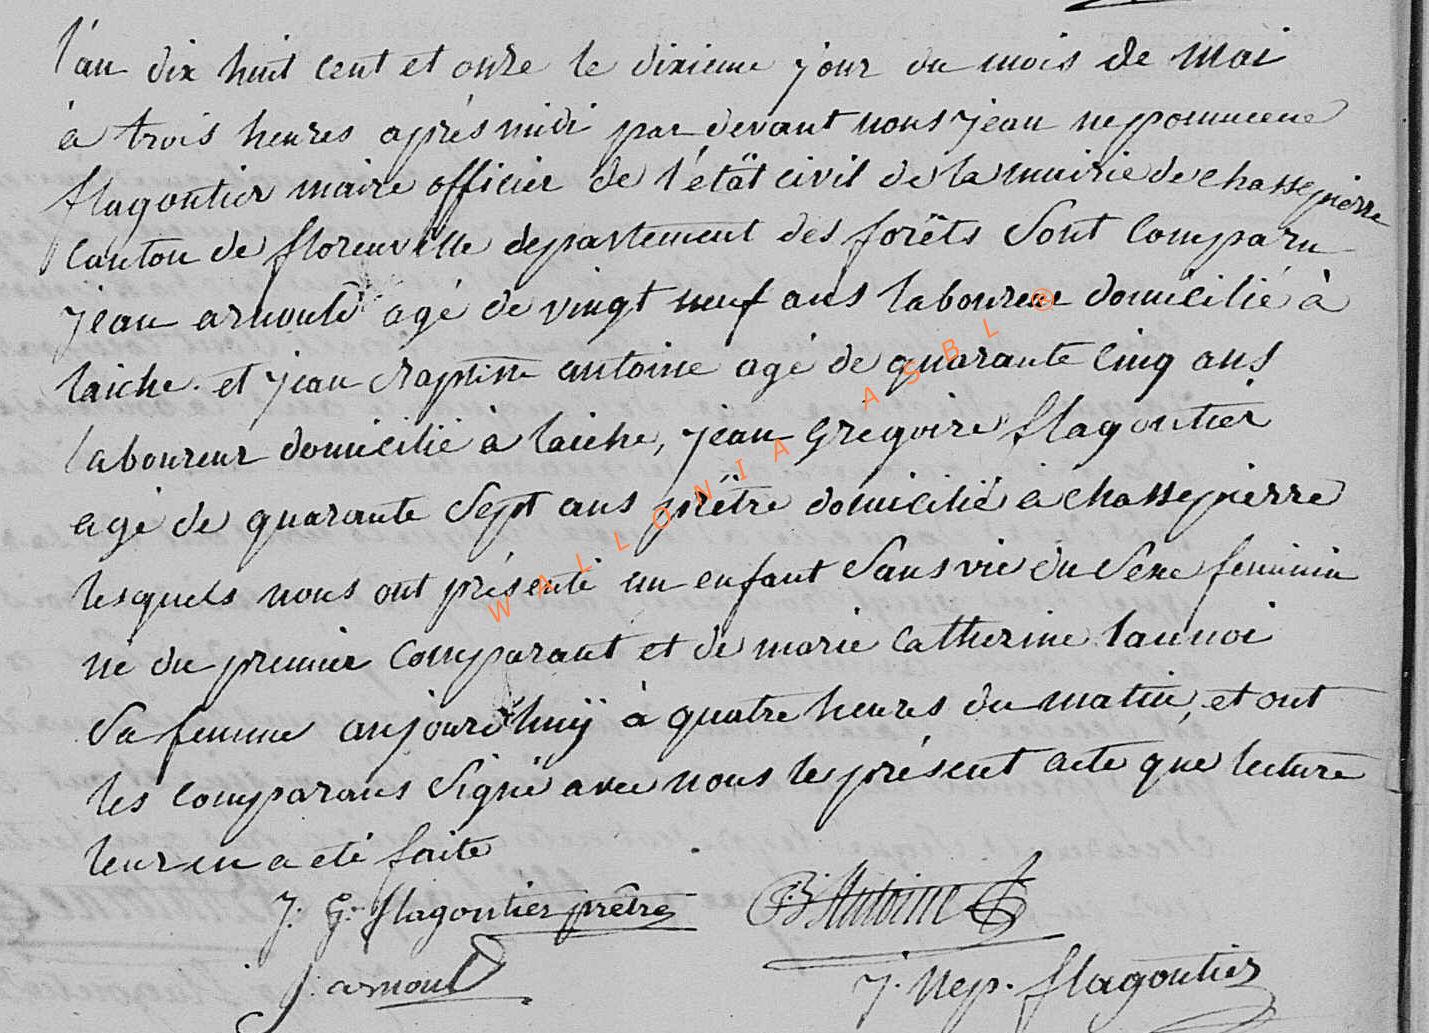 l'an dix huit cent et onze le dixieme jour du mois de mai
à trois heures aprés midi par devant nous jean neppomucene
flagontier maire officier de l'étât civil de la mairie de chassepierre
canton de florenville departement des forêts sont comparu
jean arnould agé de vingt neuf ans laboureur domicilié à
laiche et jean Baptiste antoine agé de quarante cinq ans
laboureur domicilié à laiche, jean gregoire flagontier
agé de quarante sept ans prêtre domicilié à chassepierre
lesquels nous ont présenté un enfant sans vie du sexe feminin
né du premier comparant et de marie catherine launoi
sa femme aujourd'huÿ à quatre heures du matin, et ont
les comparans signé avec nous le présent acte que lecture
leur en a été faite
J. G. flagontier prêtre JB Antoine
J. arnould
J. Nep. flagontier
WALLONIA ASBL ®